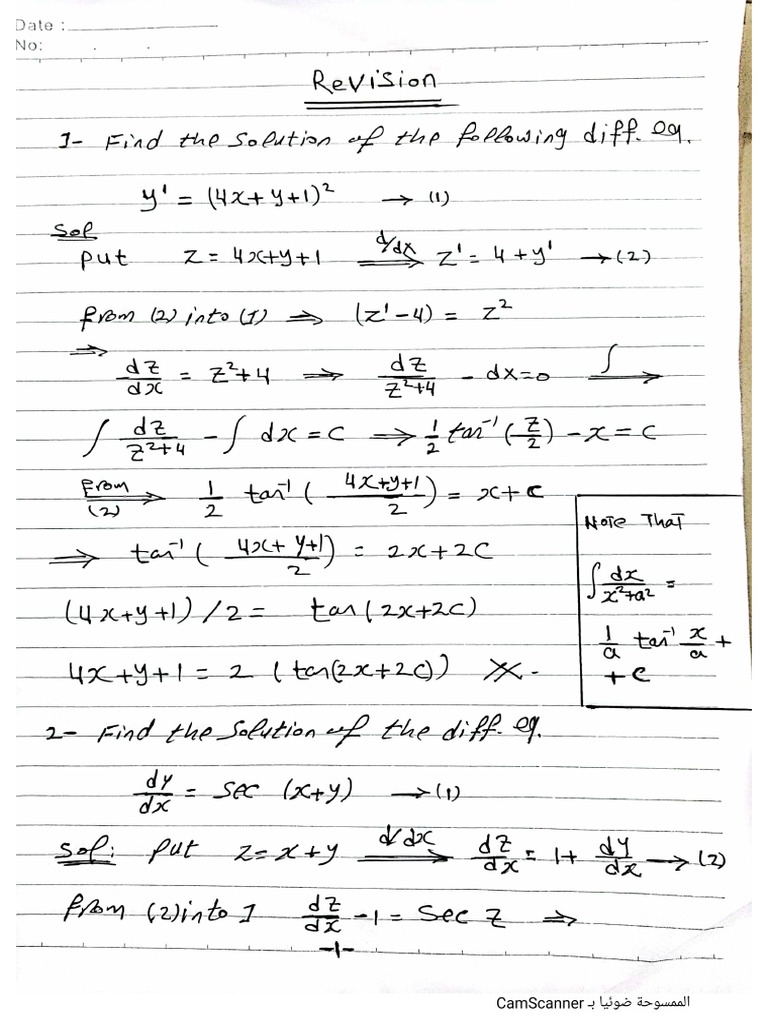 Date :
No:
Revision
1- Find the solution of the following diff. eq.
y' = (4x+y+1)² → (1)
Sol
put z = 4x+y+1 d/dx ⟹ z' = 4+y' → (2)
from (2) into (1) ⟹ (z'-4) = z²
⟹ dz/dx = z²+4 ⟹ dz/(z²+4) - dx=0 ∫⟶
∫ dz/(z²+4) - ∫ dx = c ⟹ 1/2 tan⁻¹(z/2) - x = c
From (2) ⟹ 1/2 tan⁻¹((4x+y+1)/2) = x+c
⟹ tan⁻¹((4x+y+1)/2) = 2x+2c
(4x+y+1)/2 = tan(2x+2c)
4x+y+1 = 2 (tan(2x+2c))
Note That
∫ dx/(x²+a²) =
1/a tan⁻¹ x/a +
+ c
2- Find the solution of the diff. eq.
dy/dx = sec (x+y) → (1)
Sol: put z = x+y d/dx ⟹ dz/dx = 1+ dy/dx → (2)
from (2) into 1 dz/dx -1 = sec z ⟹
-1-
الممسوحة ضوئيا بـ CamScanner